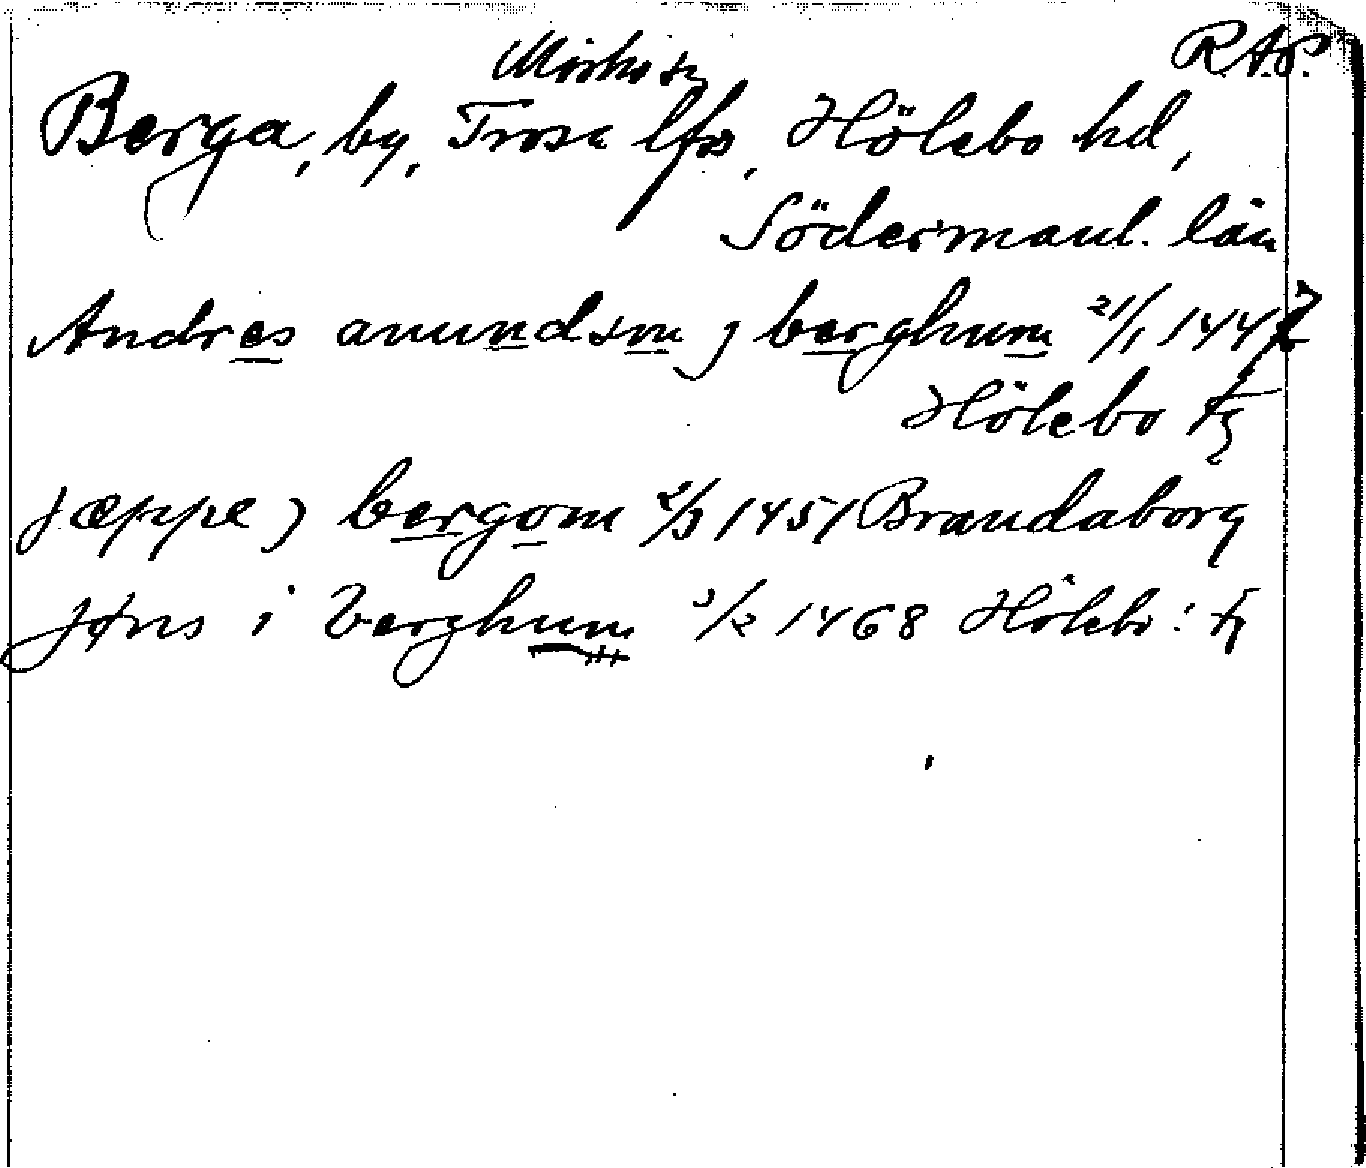 Mörkö sn R.A.P.
Berga, by, Trosa lfs, Hölebo hd,
Södermanl. län
Andres anundsm j berghum 21/1 1447
Hölebo tg
jæppe j bergom 2/3 1451 Brandaborg
jøns i berghum 3/2 1468 Hölebo: tg